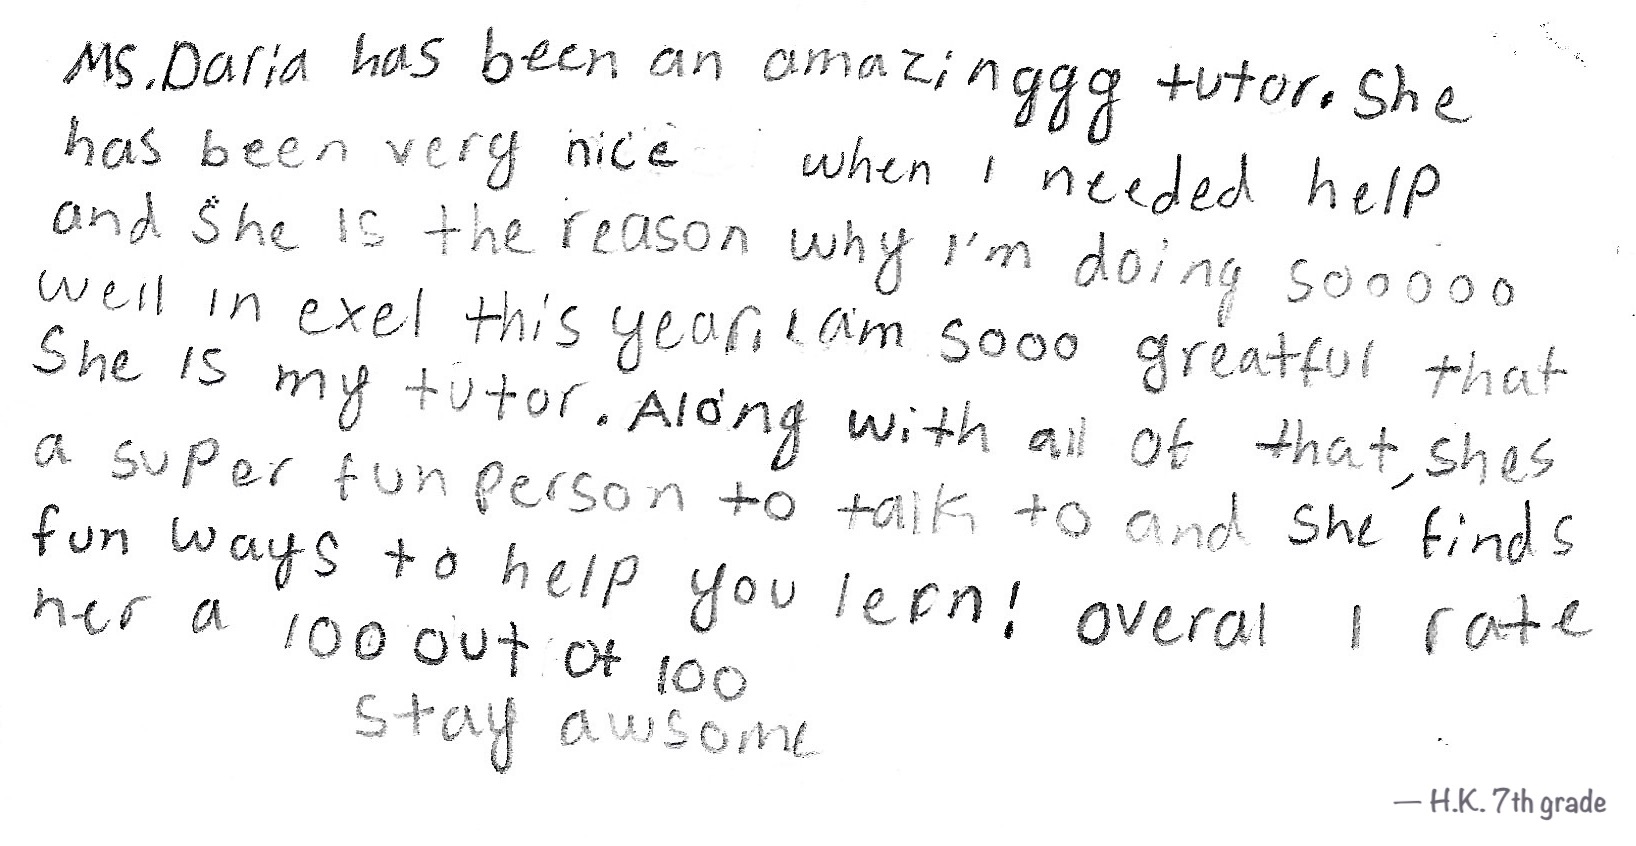 Ms. Daria has been an amazinggg tutor. She
has been very nice when I needed help
and She is the reason why I'm doing sooooo
well in exel this year. I am sooo greatful that
She is my tutor. Along with all of that, shes
a super fun person to talk to and she finds
fun ways to help you lern! overal I rate
her a 100 out of 100
Stay awsome
— H.K. 7th grade